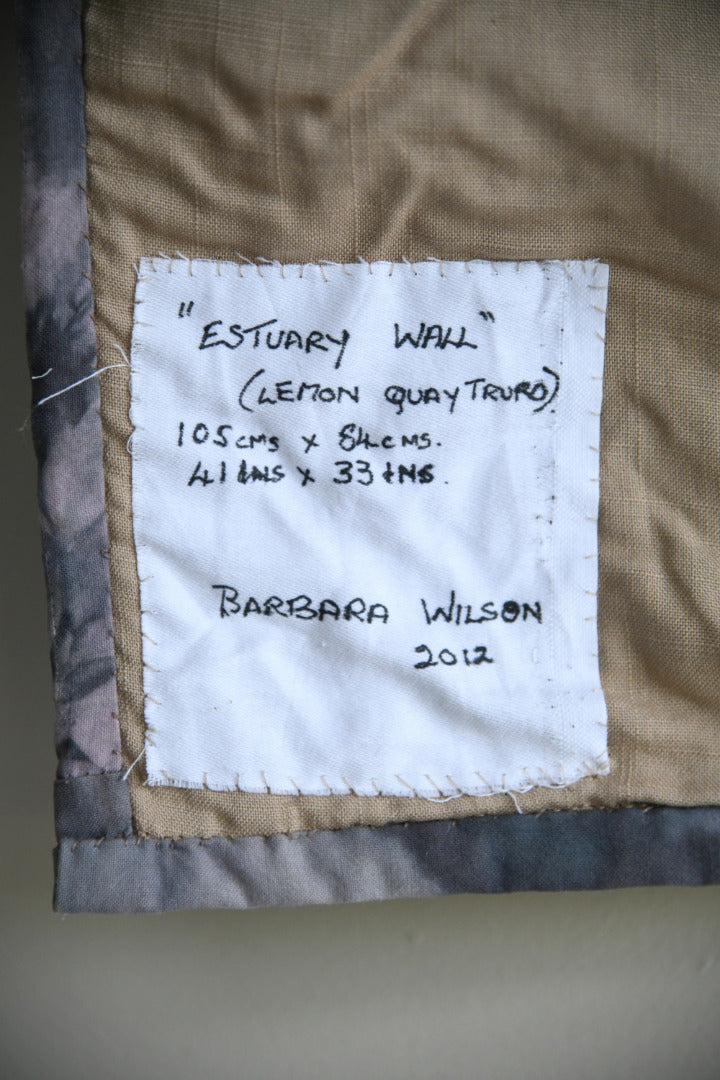 "ESTUARY WALL"
(LEMON QUAY TRURO).
105cms x 84cms.
41INS x 33INS.
BARBARA WILSON
2012